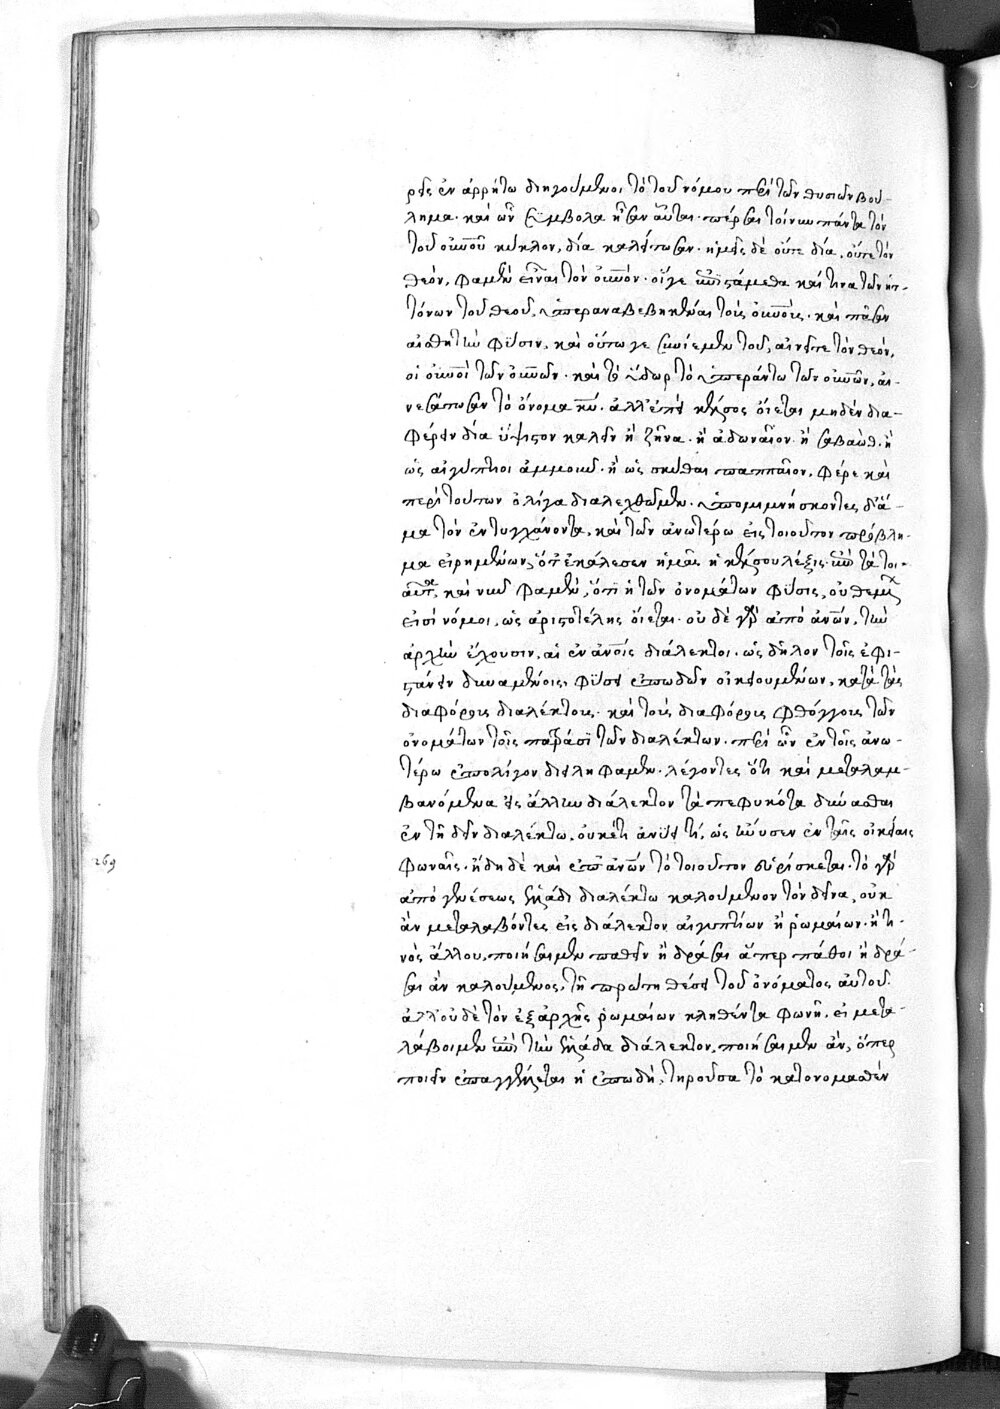 ρεῖς ἐν ἀρρήτω διηγούμενοι τὸ τοῦ νόμου περὶ τῶν θυσιῶν βού-
λημα· καὶ ὧν σύμβολα ἦσαν αὗται· πέρσαι τοίνυν πάντα τὸν
τοῦ οὐνοῦ κύκλον, δία καλείτωσαν· ἡμεῖς δὲ οὔτε δία, οὔτε τὸν
θεόν, φαμὲν εἶναι τὸν οὐνόν· οἵγε ἐπιστάμεθα καί τινα τῶν ἡτ-
τόνων τοῦ θεοῦ, ὑπεραναβεβηκέναι τοὺς οὐνούς· καὶ πᾶσαν
αἰσθητὴν φύσιν, καὶ οὕτω γε συνίεμεν τοῦ, αἰνεῖτε τὸν θεόν,
οἱ οὐνοὶ τῶν οὐνῶν· καὶ τὸ ὕδωρ τὸ ὑπεράνω τῶν οὐνῶν, αἰ-
νεσάτωσαν τὸ ὄνομα κυ. ἀλλ' ἐπεὶ κέλσος οἴεται μηδὲν δια-
φέρειν δία ὕψιστον καλεῖν ἢ ζῆνα· ἢ ἀδωναῖον· ἢ σαβαώθ· ἢ
ὡς αἰγύπτιοι ἀμμοῦν· ἢ ὡς σκύθαι παππαῖον. φέρε καὶ
περὶ τούτων ὀλίγα διαλεχθῶμεν. ὑπομιμνήσκοντες δ' ἅ-
μα τὸν ἐντυγχάνοντα, καὶ τῶν ἀνωτέρω εἰς τοιοῦτον πρόβλη-
μα εἰρημένων, ὅτ' ἐκάλεσεν ἡμᾶς ἡ κέλσου λέξις ἐπὶ τὰ τοι-
αῦτα, καὶ νῦν φαμὲν, ὅτι ἡ τῶν ὀνομάτων φύσις, οὐ θεμένων
εἰσὶ νόμοι, ὡς ἀριστοτέλης οἴεται· οὐ δὲ γὰρ ἀπὸ ἀνων, τὴν
ἀρχὴν ἔχουσιν, αἱ ἐν ἀνοις διάλεκτοι. ὡς δῆλον τοῖς ἐφι-
στάνειν δυναμένοις, φύσει ἐπωδῶν οἰκειουμένων, κατὰ τὰς
διαφόρους διαλέκτους· καὶ τοὺς διαφόρους φθόγγους τῶν
ὀνομάτων τοῖς πατράσι τῶν διαλέκτων. περὶ ὧν ἐν τοῖς ἀνω-
τέρω ἐπολίγον διειλήφαμεν. λέγοντες ὅτι καὶ μεταλαμ-
βανόμενα εἰς ἄλλην διάλεκτον τὰ πεφυκότα δύνασθαι
ἐν τῆ δεῖν διαλέκτω, οὐκέτι ἀνύει τί, ὡς ἤνυσεν ἐν ταῖς οἰκείαις
φωναῖς. ἤδη δὲ καὶ ἐπὶ ἀνων τὸ τοιοῦτον εὑρίσκεται. τὸ γὰρ
ἀπὸ γενέσεως ἑλλάδι διαλέκτω καλούμενον τὸν δεῖνα, οὐκ
ἂν μεταλαβόντες εἰς διάλεκτον αἰγυπτίων ἢ ῥωμαίων· ἤ τι-
νὸς ἄλλου, ποιήσαιμεν παθεῖν ἢ δρᾶσαι ἅπερ πάθοι ἢ δρά-
σαι ἂν καλούμενος, τῆ πρώτη θέσει τοῦ ὀνόματος αὐτοῦ.
ἀλλ' οὐδὲ τὸν ἐξ ἀρχῆς ῥωμαίων κληθέντα φωνῆ, εἰ μετα-
λάβοιμεν ἐπὶ τὴν ἑλλάδα διάλεκτον, ποιήσαιμεν ἂν, ὅπερ
ποιεῖν ἐπαγγέλλεται ἡ ἐπωδὴ, τηροῦσα τὸ κατονομασθὲν
269